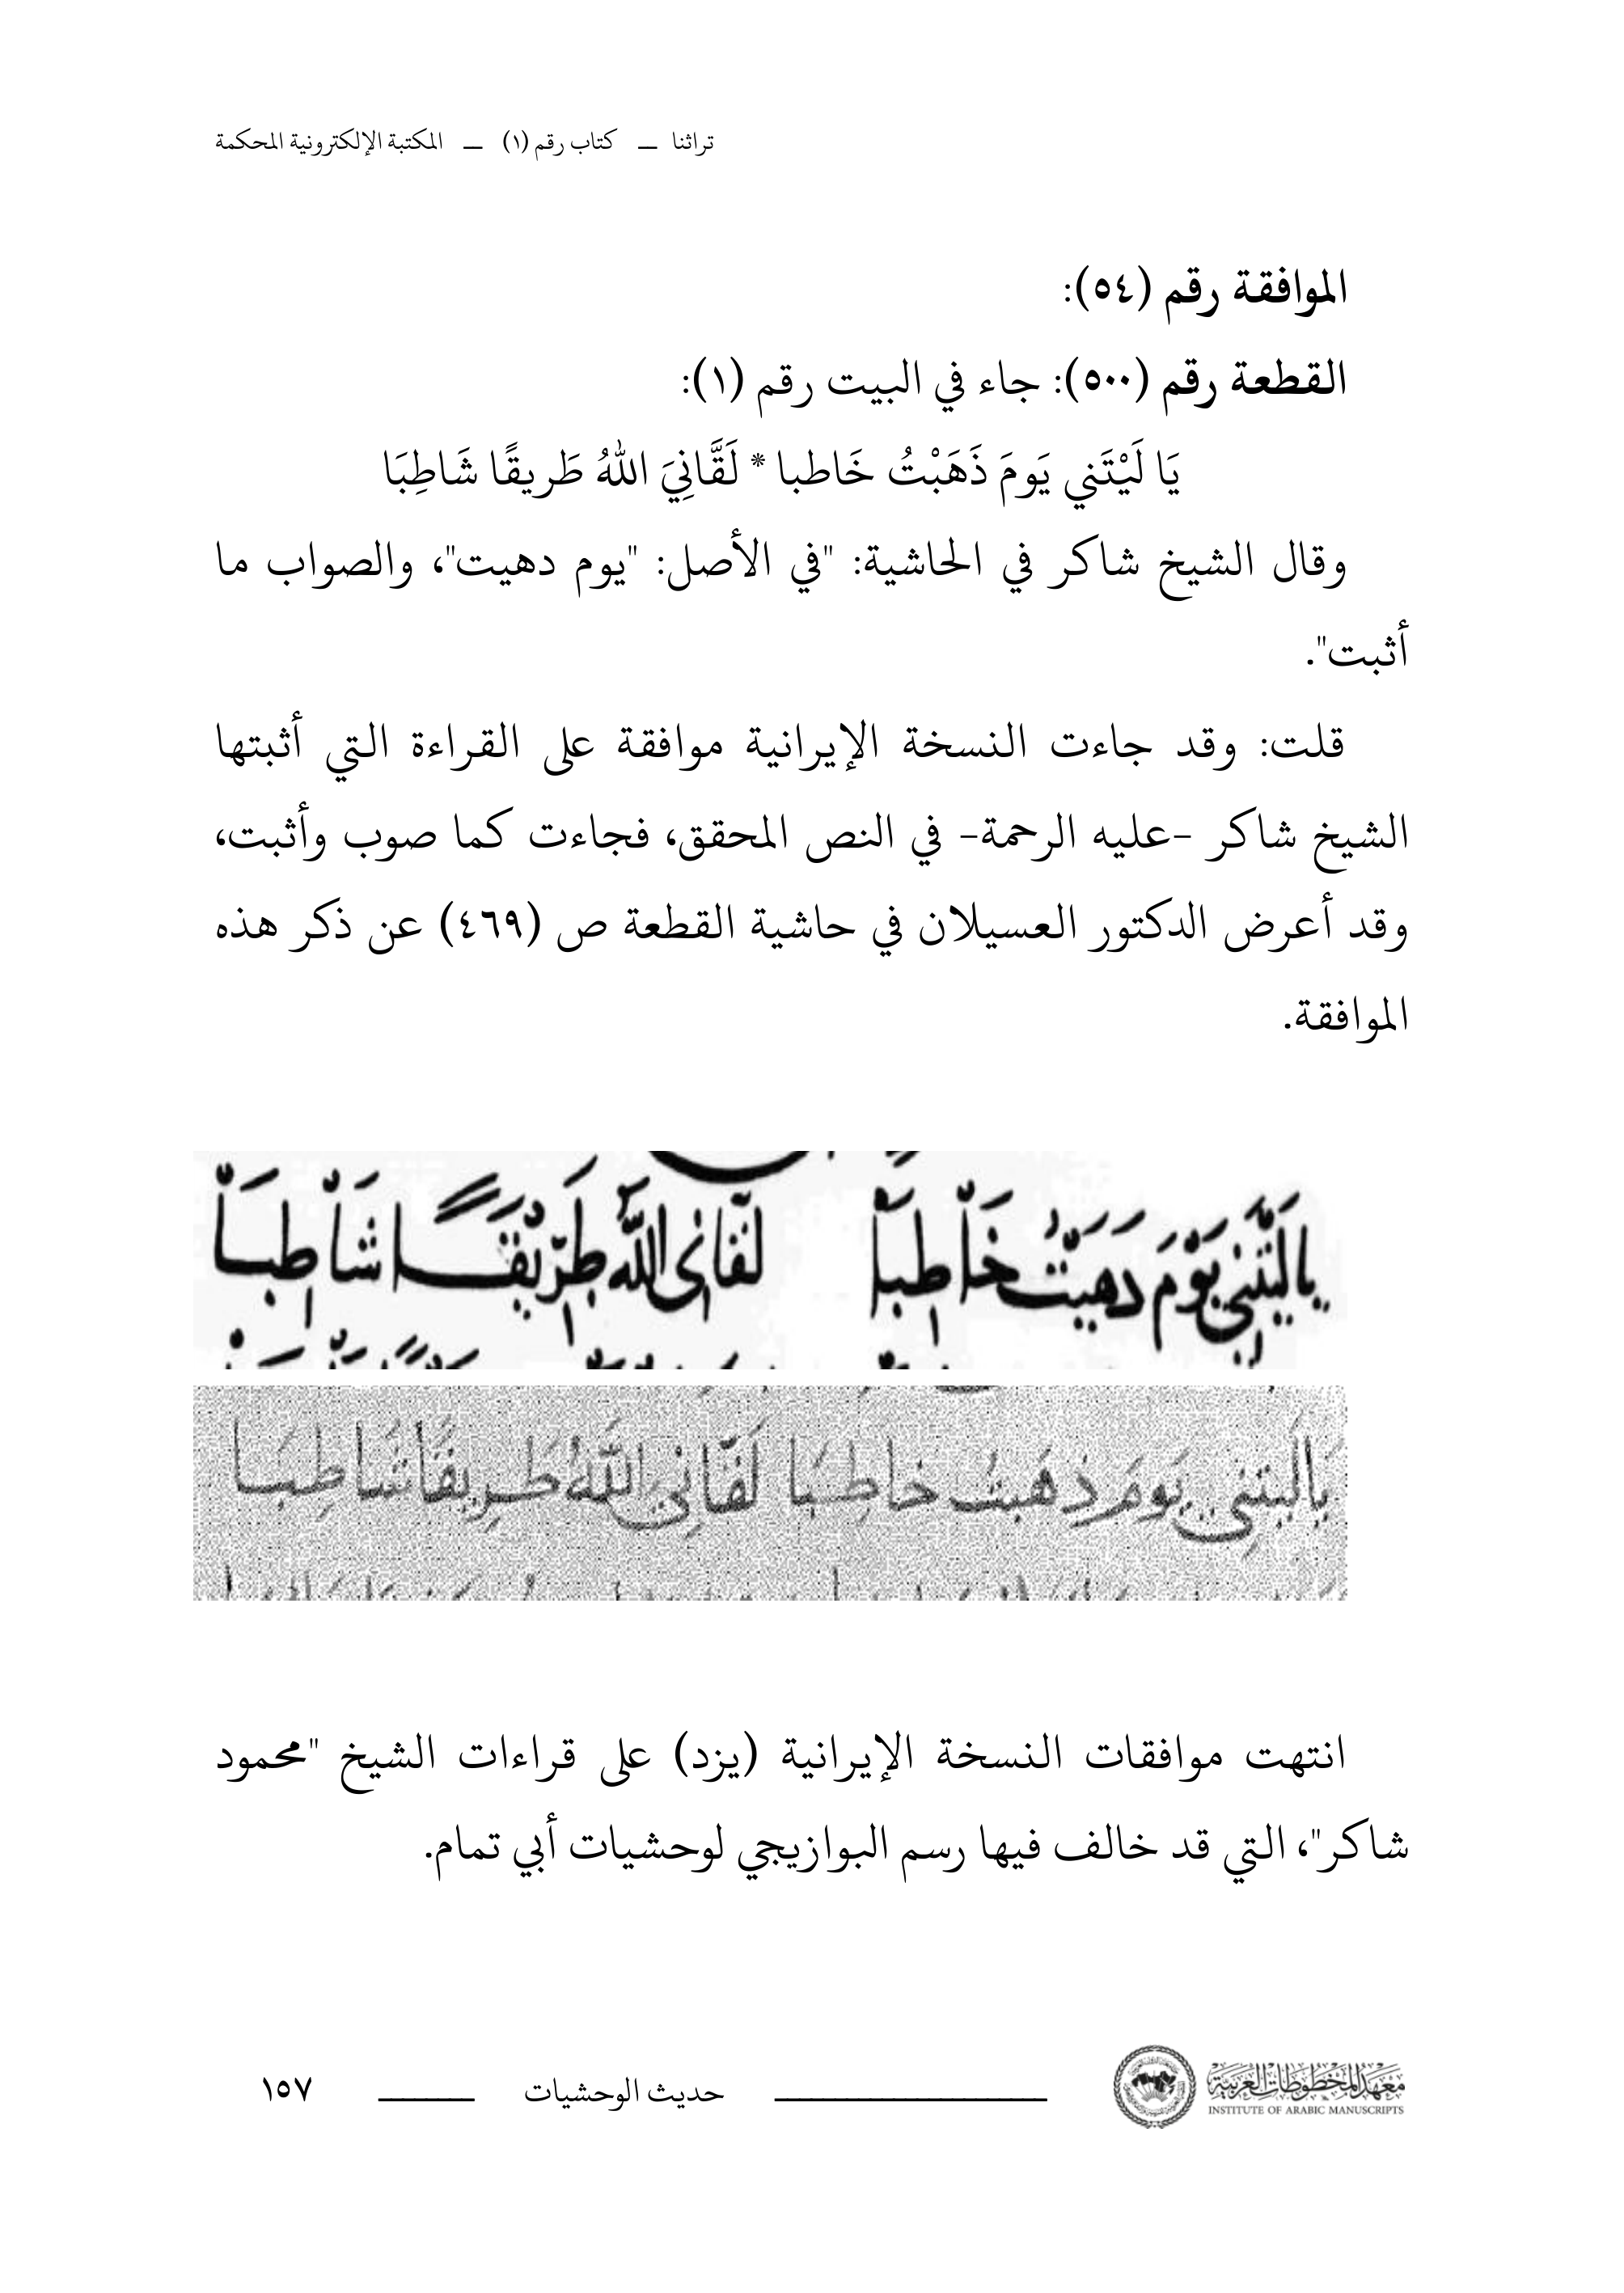 تراثنا — كتاب رقم (١) — المكتبة الإلكترونية المحكمة
الموافقة رقم (٥٤):
القطعة رقم (٥٠٠): جاء في البيت رقم (١):
يَا لَيْتَني يَومَ ذَهَبْتُ خَاطبا * لَقَّانِيَ اللهُ طَريقًا شَاطِبَا
وقال الشيخ شاكر في الحاشية: "في الأصل: "يوم دهيت"، والصواب ما
أثبت".
قلت: وقد جاءت النسخة الإيرانية موافقة على القراءة التي أثبتها
الشيخ شاكر -عليه الرحمة- في النص المحقق، فجاءت كما صوب وأثبت،
وقد أعرض الدكتور العسيلان في حاشية القطعة ص (٤٦٩) عن ذكر هذه
الموافقة.
يا ليتني يوم دهيت خاطبا لقاني الله طريقا شاطبا
يا ليتني يوم ذهبت خاطبا لقاني الله طريقا شاطبا
انتهت موافقات النسخة الإيرانية (يزد) على قراءات الشيخ "محمود
شاكر"، التي قد خالف فيها رسم البوازيجي لوحشيات أبي تمام.
معهد المخطوطات العربية
INSTITUTE OF ARABIC MANUSCRIPTS
حديث الوحشيات
١٥٧